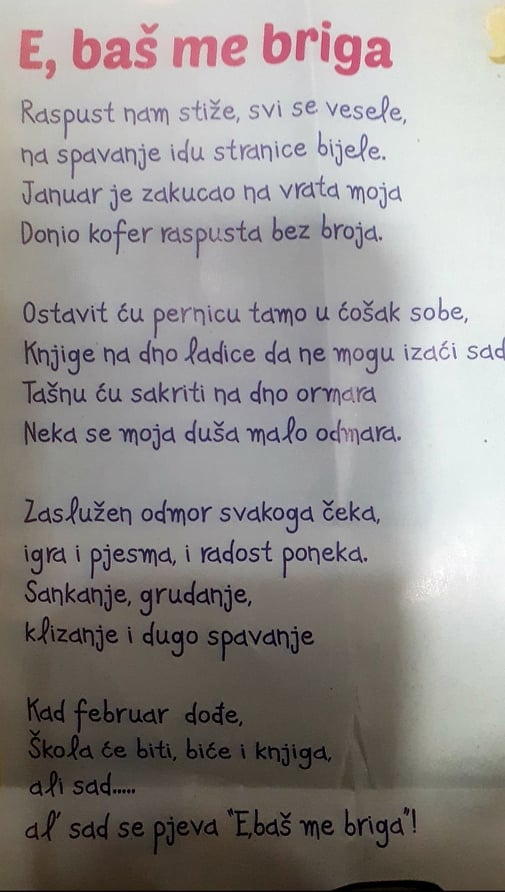 E, baš me briga
Raspust nam stiže, svi se vesele,
na spavanje idu stranice bijele.
Januar je zakucao na vrata moja
Donio kofer raspusta bez broja.
Ostavit ću pernicu tamo u ćošak sobe,
Knjige na dno ladice da ne mogu izaći sad
Tašnu ću sakriti na dno ormara
Neka se moja duša malo odmara.
Zaslužen odmor svakoga čeka,
igra i pjesma, i radost poneka.
Sankanje, grudanje,
klizanje i dugo spavanje
Kad februar dođe,
Škola će biti, biće i knjiga,
ali sad.....
al' sad se pjeva "E,baš me briga"!